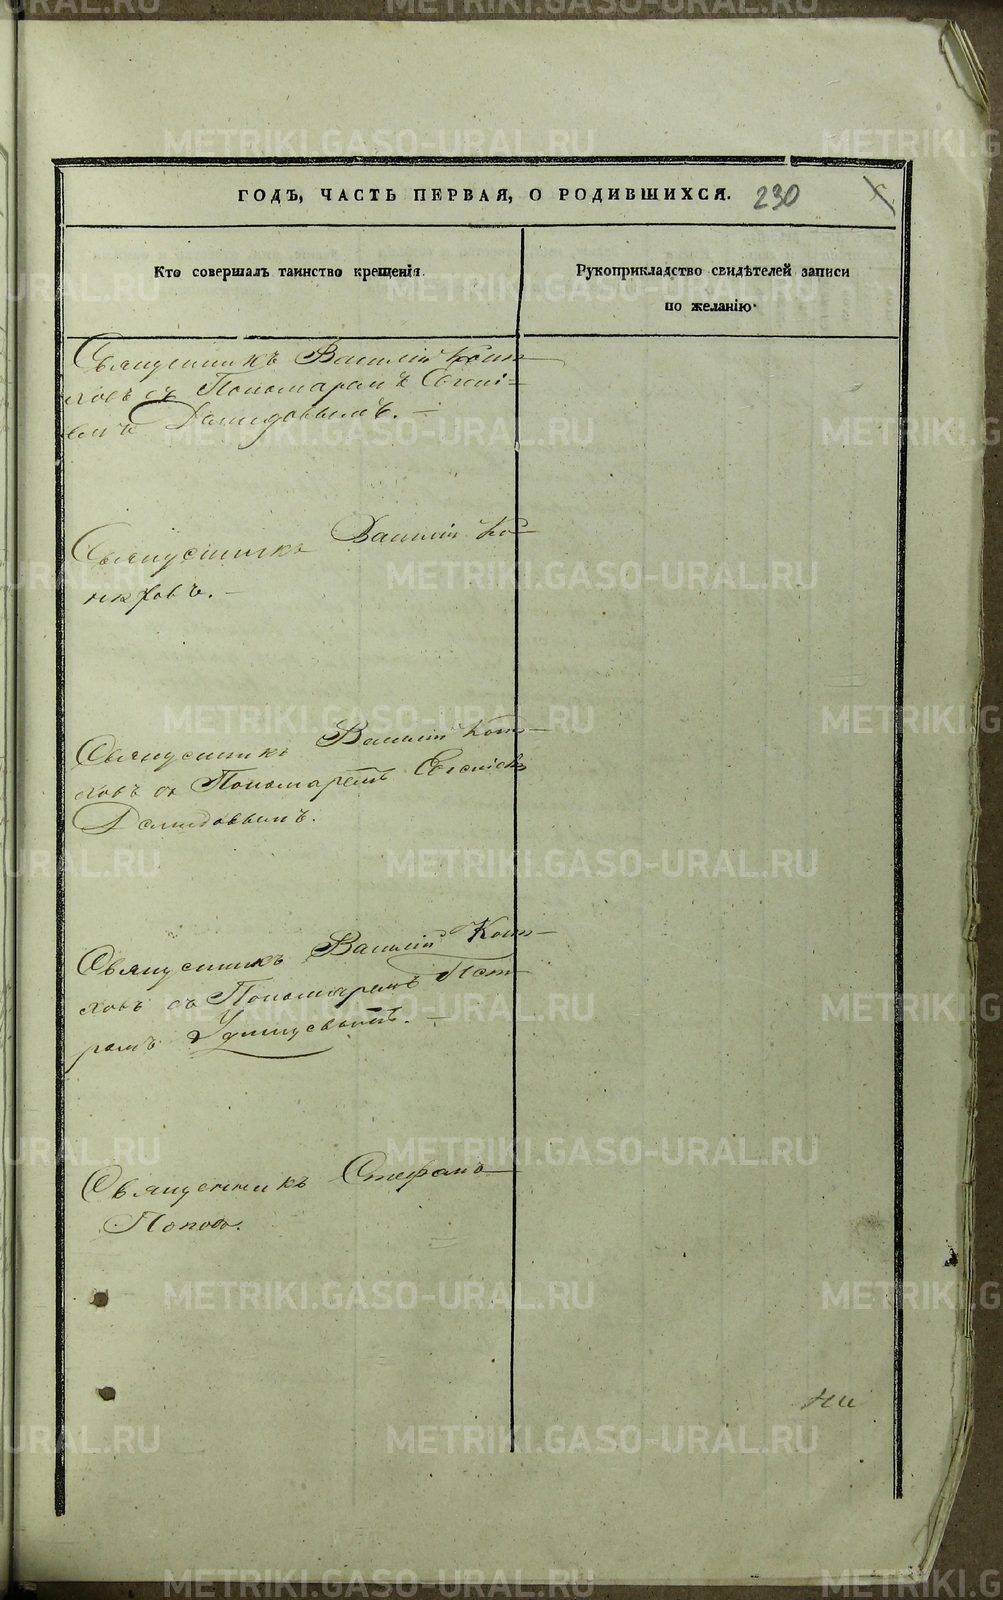 ГОДЪ, ЧАСТЬ ПЕРВАЯ, О РОДИВШИХСЯ. 230
Кто совершалъ таинство крещенія.
Рукоприкладство свидѣтелей записи
по желанію.
Священникъ Василій Кот-
ховъ съ Пономаремъ Евсиі-
емъ Демидовымъ. —
Священникъ Василій Ко-
ховъ. —
Священникъ Василій Кот-
ховъ съ Пономаремъ
Демидовымъ.
Священникъ Василій Кот-
ховъ съ Пономаремъ Пет-
ромъ Удинцевымъ. —
Священникъ Стефанъ
Поповъ.
METRIKI.GASO-URAL.RU